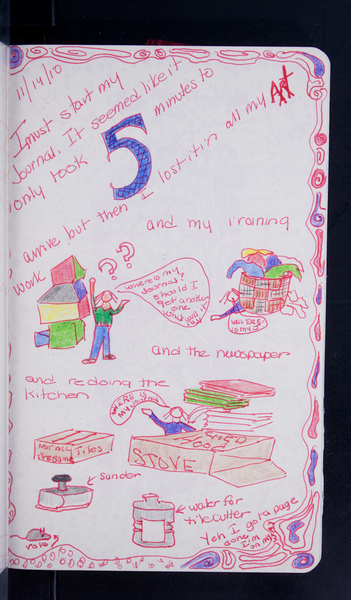 11/14/10
I must start my
Journal. It seemed like it
only took 5 minutes to
arrive but then I lost it in all my Art
work
and my ironing
where is my
Journal?
should I
get another
one
and the newspaper
and redoing the
kitchen
where is
my
STOVE
NOT ALL
the same
Tiles
sander
water for
tile cutter
Yeh I got a page
done I'm
on my